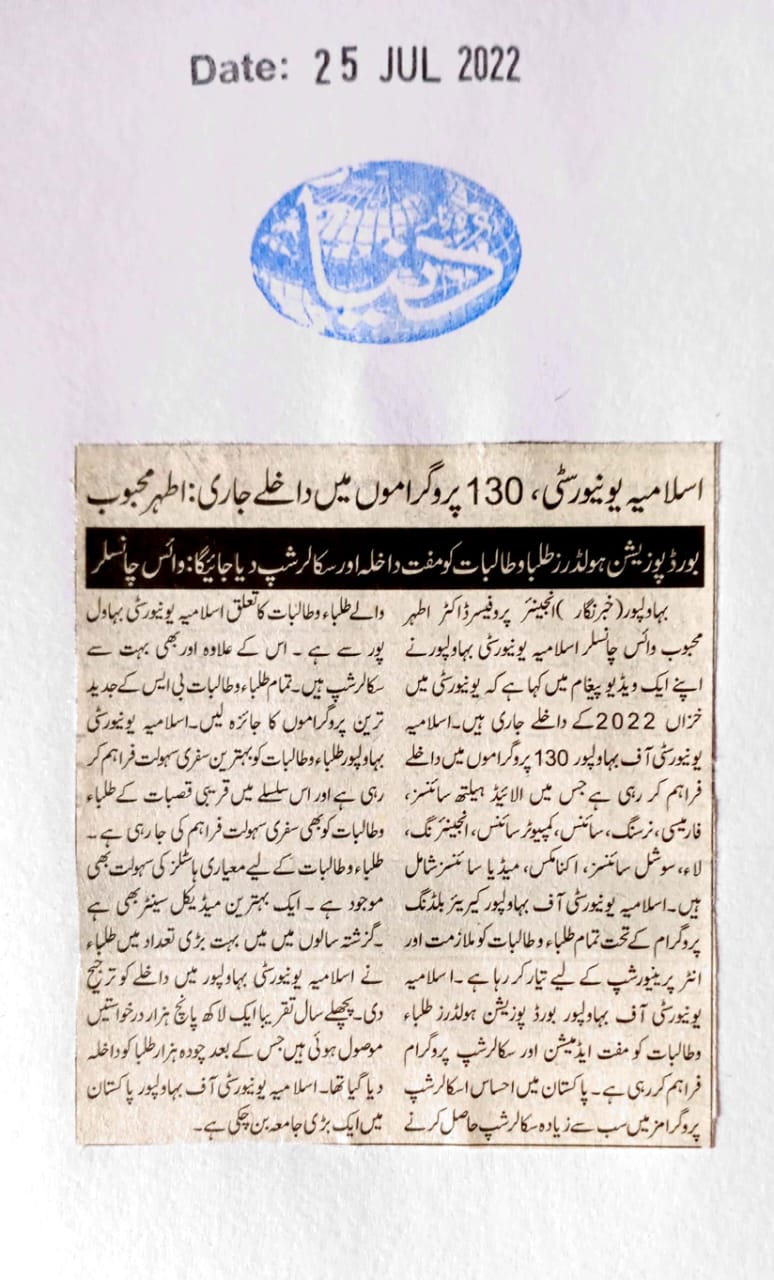 Date: 25 JUL 2022
روزنامہ دنیا
اسلامیہ یونیورسٹی، 130 پروگراموں میں داخلے جاری: اطہر محبوب
بورڈ پوزیشن ہولڈرز طلبا و طالبات کو مفت داخلہ اور سکالرشپ دیا جائیگا: وائس چانسلر
بہاولپور (خبرنگار) انجینئر پروفیسر ڈاکٹر اطہر
محبوب وائس چانسلر اسلامیہ یونیورسٹی بہاولپور نے
اپنے ایک ویڈیو پیغام میں کہا ہے کہ یونیورسٹی میں
خزاں 2022 کے داخلے جاری ہیں۔ اسلامیہ
یونیورسٹی آف بہاولپور 130 پروگراموں میں داخلے
فراہم کر رہی ہے جس میں الائیڈ ہیلتھ سائنسز،
فارمیسی، نرسنگ، سائنس، کمپیوٹر سائنس، انجینئرنگ،
لاء، سوشل سائنسز، اکنامکس، میڈیا سائنسز شامل
ہیں۔ اسلامیہ یونیورسٹی آف بہاولپور کیریئر بلڈنگ
پروگرام کے تحت تمام طلباء و طالبات کو ملازمت اور
انٹر پرینیورشپ کے لیے تیار کر رہا ہے۔ اسلامیہ
یونیورسٹی آف بہاولپور بورڈ پوزیشن ہولڈرز طلباء
و طالبات کو مفت ایڈمیشن اور سکالرشپ پروگرام
فراہم کر رہی ہے۔ پاکستان میں احساس اسکالرشپ
پروگرامز میں سب سے زیادہ سکالرشپ حاصل کرنے
والے طلباء و طالبات کا تعلق اسلامیہ یونیورسٹی بہاول
پور سے ہے۔ اس کے علاوہ اور بھی بہت سے
سکالرشپ ہیں۔ تمام طلباء و طالبات بی ایس کے جدید
ترین پروگراموں کا جائزہ لیں۔ اسلامیہ یونیورسٹی
بہاولپور طلباء و طالبات کو بہترین سفری سہولت فراہم کر
رہی ہے اور اس سلسلے میں قریبی قصبات کے طلباء
و طالبات کو بھی سفری سہولت فراہم کی جا رہی ہے۔
طلباء و طالبات کے لیے معیاری ہاسٹلز کی سہولت بھی
موجود ہے۔ ایک بہترین میڈیکل سینٹر بھی ہے
۔گزشتہ سالوں میں میں بہت بڑی تعداد میں طلباء
نے اسلامیہ یونیورسٹی بہاولپور میں داخلے کو ترجیح
دی۔ پچھلے سال تقریبا ایک لاکھ پانچ ہزار درخواستیں
موصول ہوئی ہیں جس کے بعد چودہ ہزار طلبا کو داخلہ
دیا گیا تھا۔ اسلامیہ یونیورسٹی آف بہاولپور پاکستان
میں ایک بڑی جامعہ بن چکی ہے۔